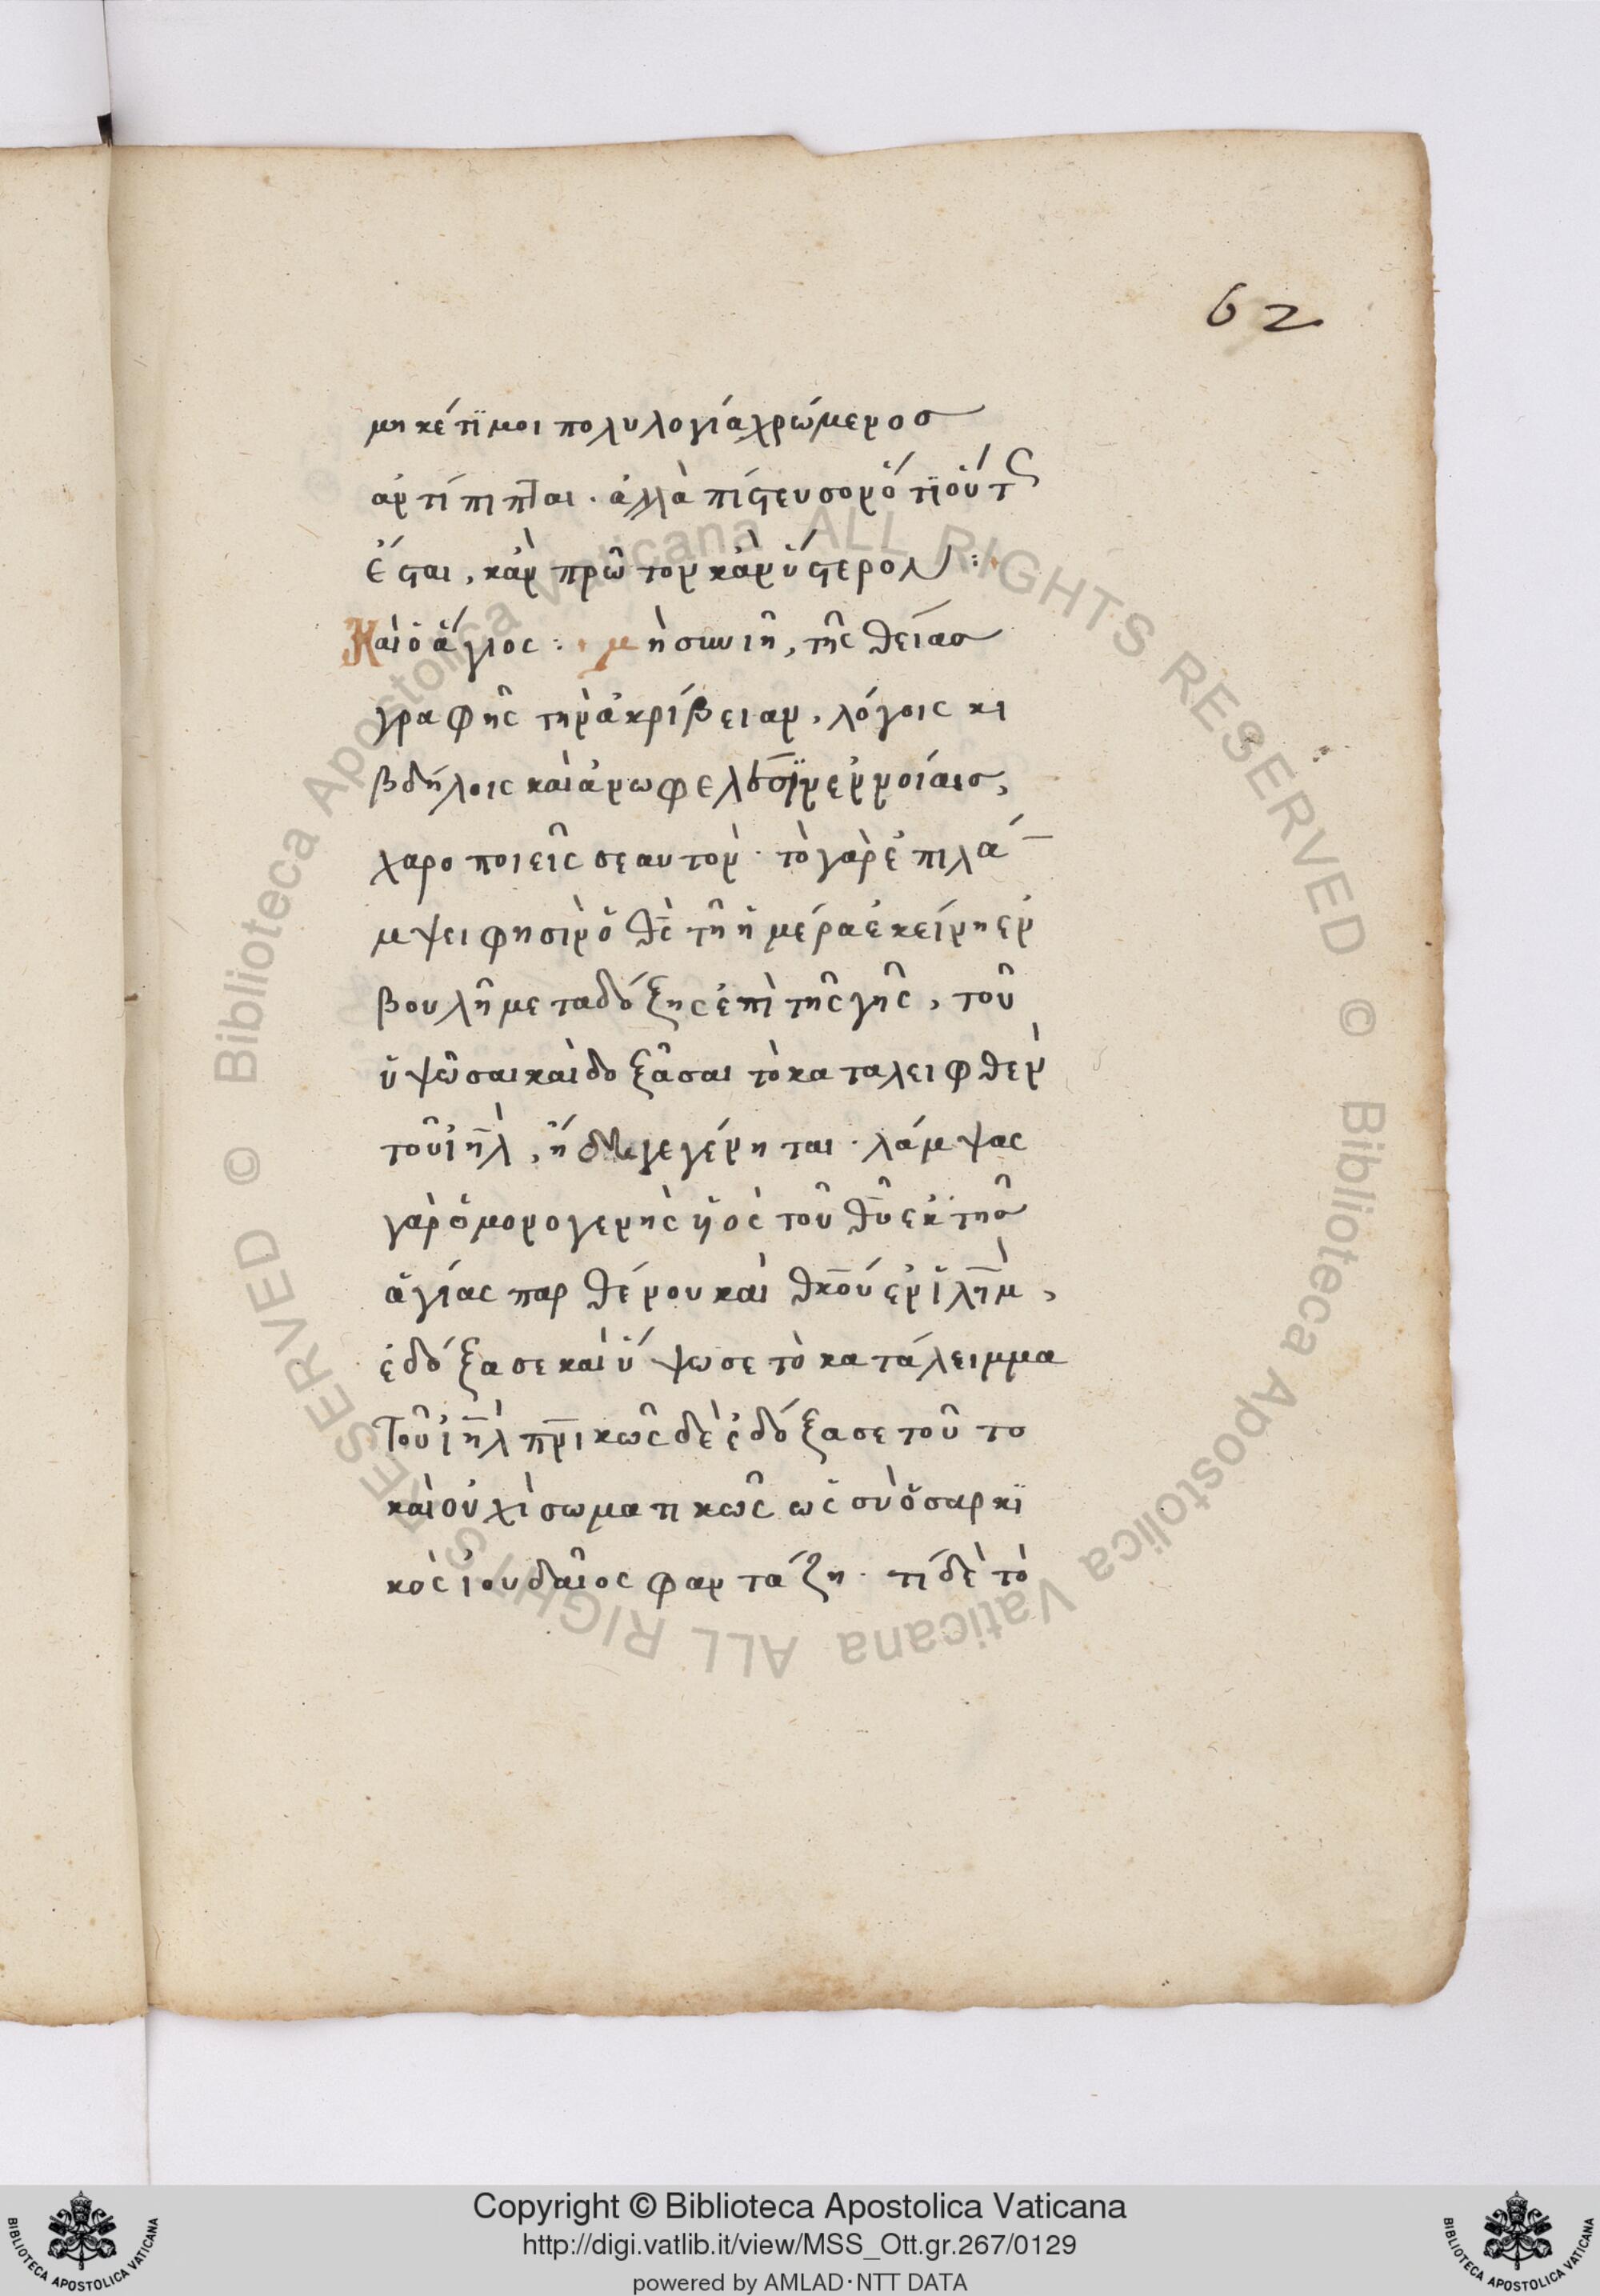 62
μηκέτι μοι πολυλογία χρώμενος
ἀντίπιπται· ἀλλὰ πίστευσον ὅτι οὕτς
ἔσται, κἂν πρῶτον κἂν ὕστερον :·
Καὶ ὁ ἅγιος : μὴ σιωπῆ, τῆς θείας
γραφῆς τὴν ἀκρίβειαν, λόγοις κι
βδήλοις καὶ ἀνωφελέσιν ἐννοίαις,
χανοποιεῖς σεαυτόν· τὸ γὰρ ἐπιλά
μψει φησὶν ὁ θς τῆ ἡμέρα ἐκείνη ἐν
βουλῆ μετὰ δόξης ἐπὶ τῆς γῆς, τοῦ
ὑψῶσαι καὶ δοξᾶσαι τὸ καταλειφθὲν
τοῦ ιηλ, ἤδη γεγένηται· λάμψας
γὰρ ὁ μονογενὴς υἱὸς τοῦ θυ ἐκ τῆς
ἁγίας παρθένου καὶ θκου ἐν ιλημ,
ἐδόξασε καὶ ὕψωσε τὸ κατάλειμμα
τοῦ ιηλ πνικῶς δὲ ἐδόξασε τοῦτο
καὶ οὐχὶ σωματικῶς ὡς σὺ ὁ σαρκι
κὸς ἰουδαῖος φαντάζη· τί δὲ τὸ
© Biblioteca Apostolica Vaticana ALL RIGHTS RESERVED © Biblioteca Apostolica Vaticana ALL RIGHTS RESERVED
Copyright © Biblioteca Apostolica Vaticana
http://digi.vatlib.it/view/MSS_Ott.gr.267/0129
powered by AMLAD·NTT DATA
BIBLIOTECA APOSTOLICA VATICANA
BIBLIOTECA APOSTOLICA VATICANA